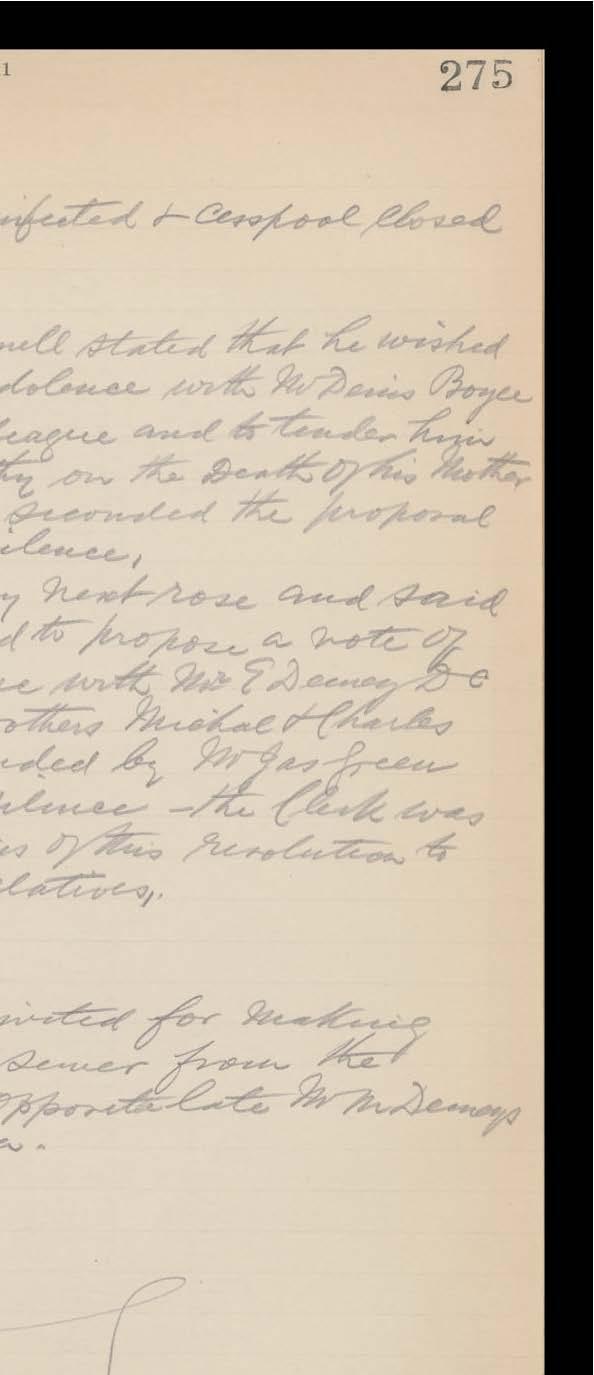 1 275
nfected & Cesspool Closed
nell stated that he wished
dolence with Mr Denis Boyce
league and to tender him
thy on the Death of his Mother
seconded the proposal
ilence,
y next rose and said
d to propose a vote of
ce with Mr E Dempsey DC
others Michal & Charles
nded by Mr Jas Green
silence - the Clerk was
ies of this resolution to
elatives,.
nvited for making
sewer from the
opposite late Mr M Dempseys
a.